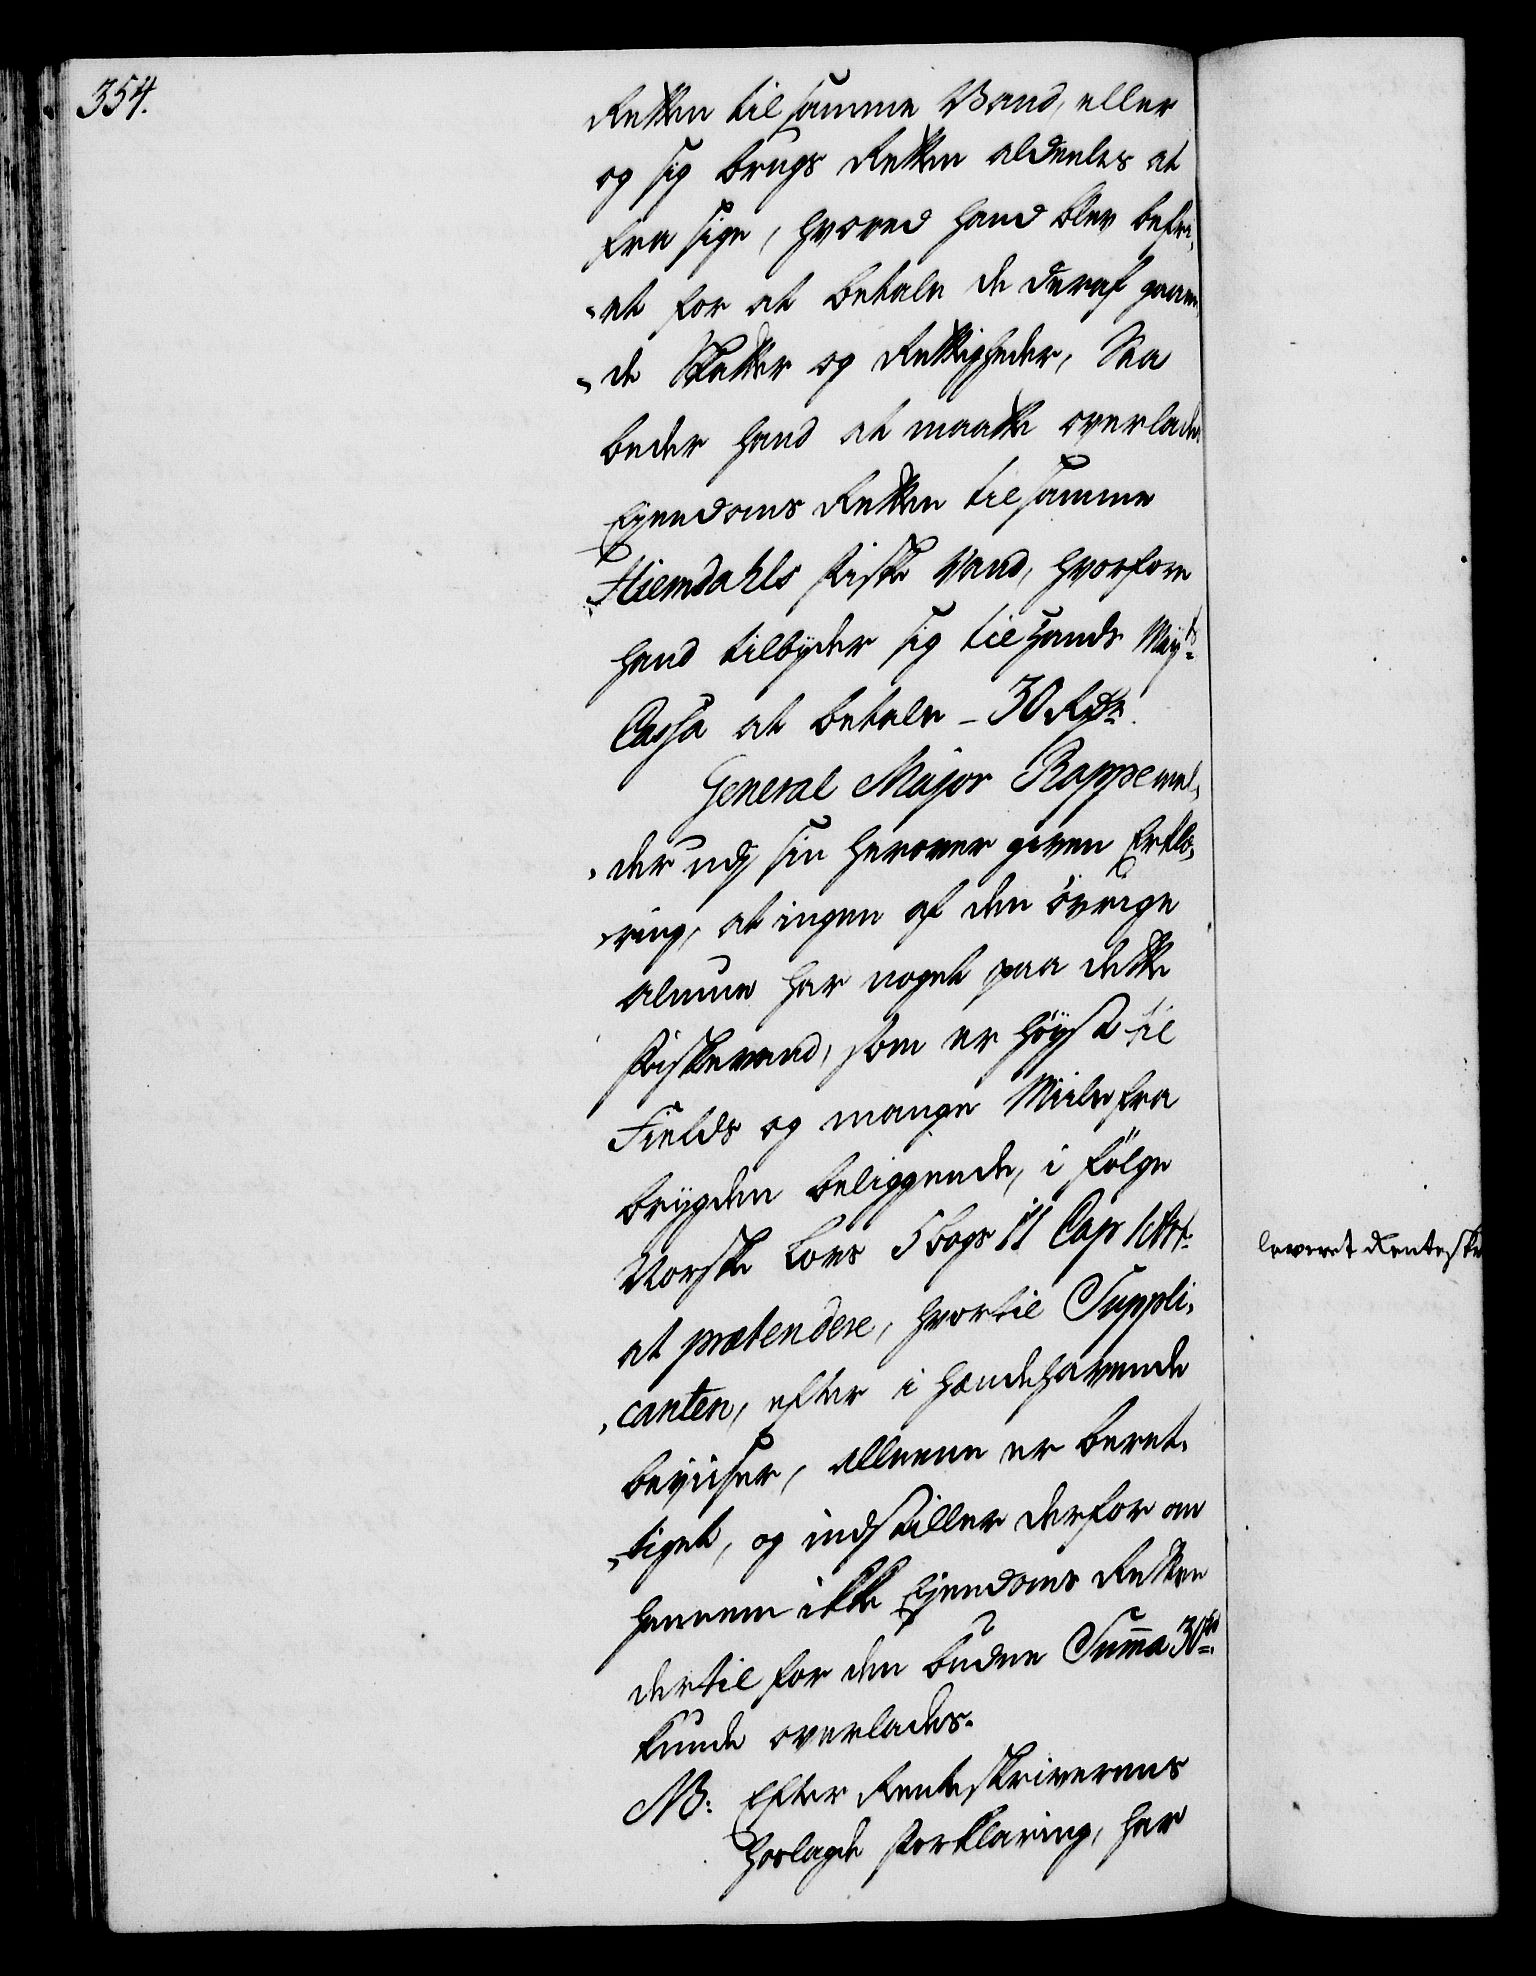 354.
Retten til samme Vand, eller
og sig brugs Retten aldeeles at
fra sige, hvoved hand blev befri,
„et for at betale de deraf gaaen,
„de Skatter og Rettigheder, Saa
beder hand at maatte overlades
Eyendoms Retten til samme
Hiemdahls Fiske Vand, hvorfore
hand tilbyder sig til Hands Mayts
Cassa at betale - 30 Rdr.
General Major Rappe mel,
„der udj sin herover given Erklæ,
„ring, at ingen af den øvrige
Almue har noget paa dette
Fiskevand, som er høyst til
Fields og mange Miile fra
bøygden beliggende, i følge
Norske Lovs 5 bogs 11 Cap 1 Art.
at prætendere, hvortil Suppli,
„canten, efter i hændehavende
beviiser, alleene er beret,
„tiget, og indstiller derfor om
hannem ikke Eyendoms Retten
dertil for den budne Summa 30 rd
kunde overlades.
NB: Efter Renteskriverens
hoslagde Forklaring, har
leveret Renteskr